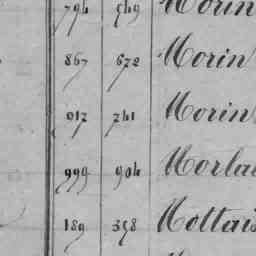 794 549 Morin
867 672 Morin
917 741 Morin
999 904 Morla
189 358 Mottais